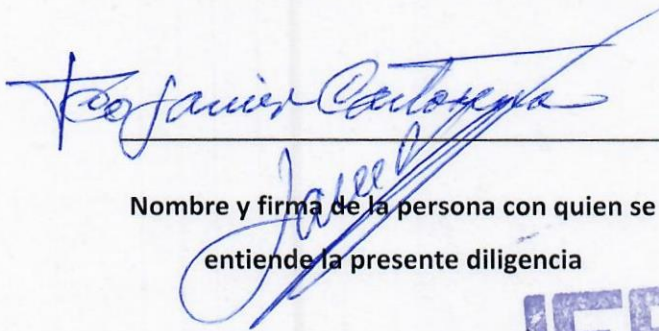 Fco Javier Cartagena
Nombre y firma de la persona con quien se
entiende la presente diligencia